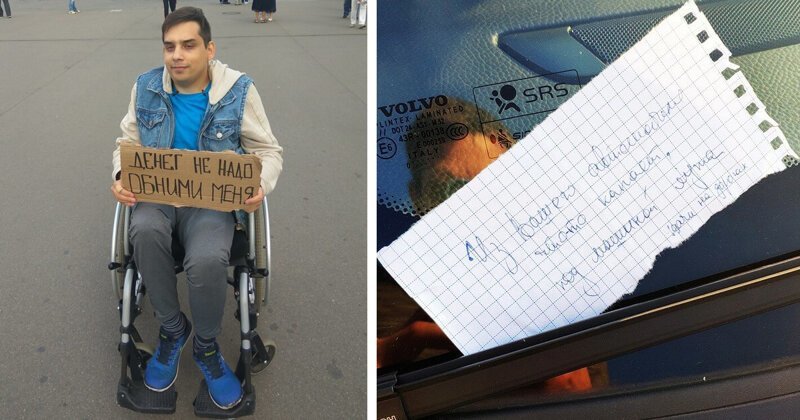 ДЕНЕГ НЕ НАДО
ОБНИМИ МЕНЯ
VOLVO
SRS
LAMINATED
ITALY
Из Вашего автомобиля
чтото капает.
под машиной лужа